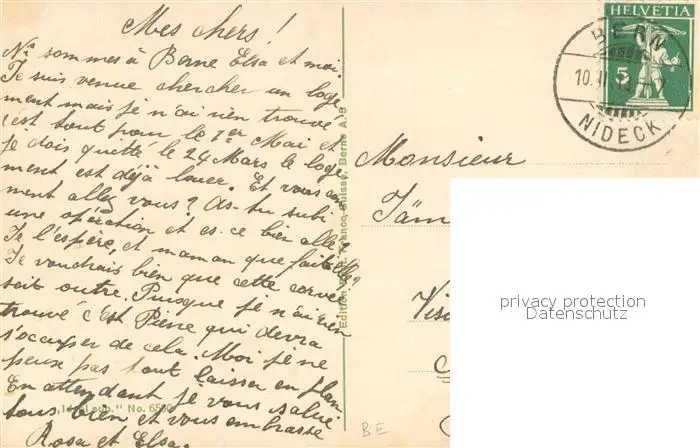 Mes chers!
Ns sommes à Berne Elsa et moi.
Je suis venue chercher un loge
ment mais je n'ai rien trouvé
c'est tout pour le 1er Mai et
je dois quitté le 24 Mars le loge
ment est déjà louer. Et vous com
ment allez vous? As-tu subi
une opération et es-ce bien allé?
Je l'espère, et maman que fait elle?
Je voudrais bien que cette corvée
soit outre. Puisque je n'ai rien
trouvé c'est Pierre qui devra
s'occuper de cela. Moi je ne
peux pas tout laisser en plan
En attendant je vous salue
tous bien et vous embrasse
Rosa et Elsa.
"Ideal sup." No. 6580
Edition Franco-Suisse, Berne
HELVETIA
5
BERN
10.II.
NIDECK
Monsieur
Jäm
Visi
BE
privacy protection
Datenschutz